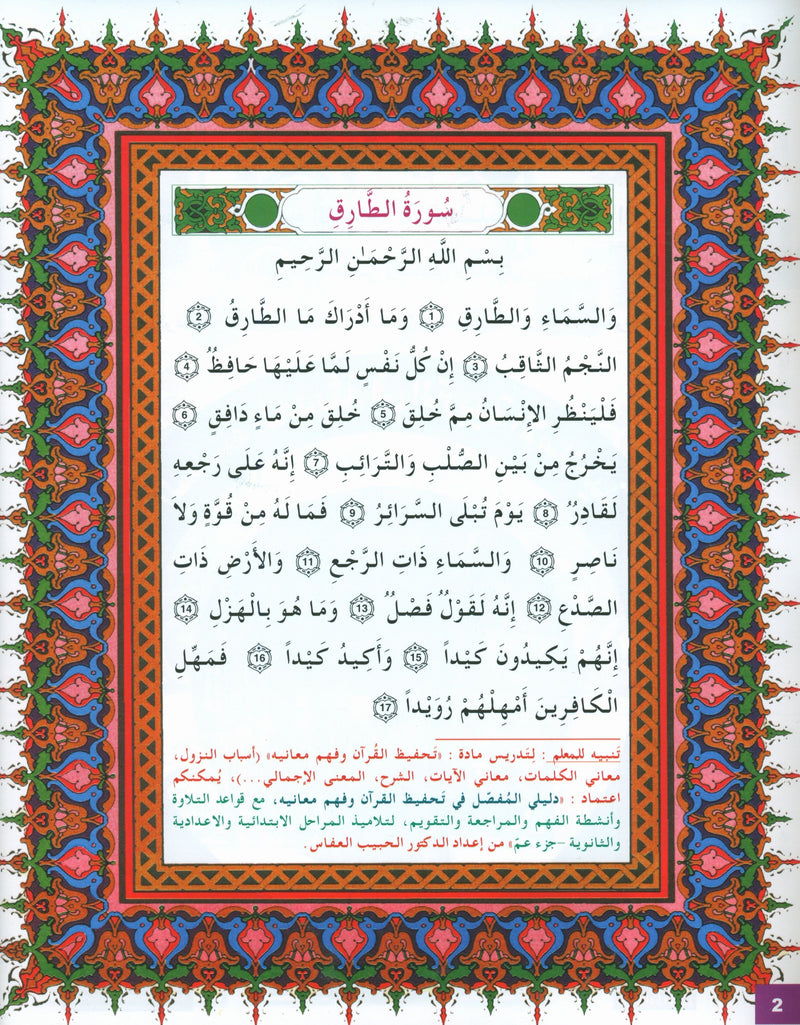 سُورَةُ الطَّارِقِ
بِسْمِ اللَّهِ الرَّحْمَـٰنِ الرَّحِيمِ
وَالسَّمَاءِ وَالطَّارِقِ 1 وَمَا أَدْرَاكَ مَا الطَّارِقُ 2
النَّجْمُ الثَّاقِبُ 3 إِنْ كُلُّ نَفْسٍ لَمَّا عَلَيْهَا حَافِظٌ 4
فَلْيَنْظُرِ الإِنْسَانُ مِمَّ خُلِقَ 5 خُلِقَ مِنْ مَاءٍ دَافِقٍ 6
يَخْرُجُ مِنْ بَيْنِ الصُّلْبِ وَالتَّرَائِبِ 7 إِنَّهُ عَلَى رَجْعِهِ
لَقَادِرٌ 8 يَوْمَ تُبْلَى السَّرَائِرُ 9 فَمَا لَهُ مِنْ قُوَّةٍ وَلاَ
نَاصِرٍ 10 وَالسَّمَاءِ ذَاتِ الرَّجْعِ 11 وَالأَرْضِ ذَاتِ
الصَّدْعِ 12 إِنَّهُ لَقَوْلٌ فَصْلٌ 13 وَمَا هُوَ بِالْهَزْلِ 14
إِنَّهُمْ يَكِيدُونَ كَيْداً 15 وَأَكِيدُ كَيْداً 16 فَمَهِّلِ
الْكَافِرِينَ أَمْهِلْهُمْ رُوَيْداً 17
تَنبيه للمعلم : لِتَدريس مادة : «تَحفيظ القُرآن وفهم معانيه» (أسباب النزول،
معاني الكلمات، معاني الآيات، الشرح، المعنى الإجمالي...)، يُمكنكم
اعتماد : «دليلي المُفصّل في تَحفيظ القرآن وفهم معانيه، مع قواعد التلاوة
وأنشطة الفهم والمراجعة والتقويم، لتلاميذ المراحل الابتدائية والاعدادية
والثانوية -جزء عمّ» من إعداد الدكتور الحبيب العفاس.
2